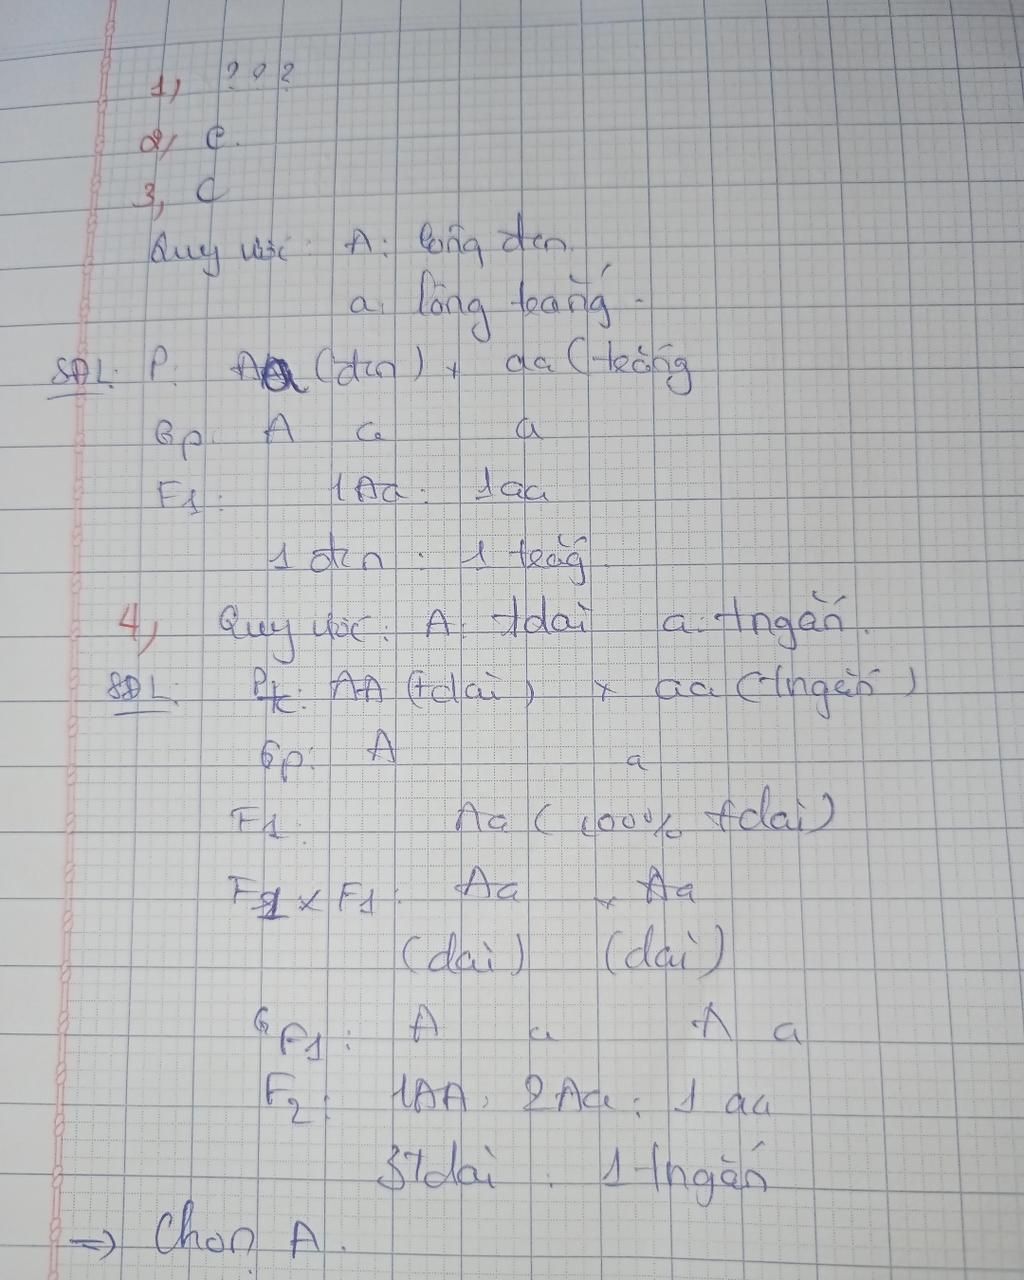 1, ???
2, C.
3, C
Quy ước: A: lông đen.
a: lông trắng.
SĐL: P: Aa (đen) x aa (trắng
Gp: A a a
F1: 1Aa : 1aa
1 đen : 1 trắng
4, Quy ước: A: tdài a: tngắn.
SĐL: Pt/c: AA (tdài) x aa (tngắn)
Gp: A a
F1: Aa (100% tdài)
F1 x F1: Aa x Aa
(dài) (dài)
GF1: A a A a
F2: 1AA : 2Aa : 1aa
3tdài : 1 tngắn
=> Chọn A.